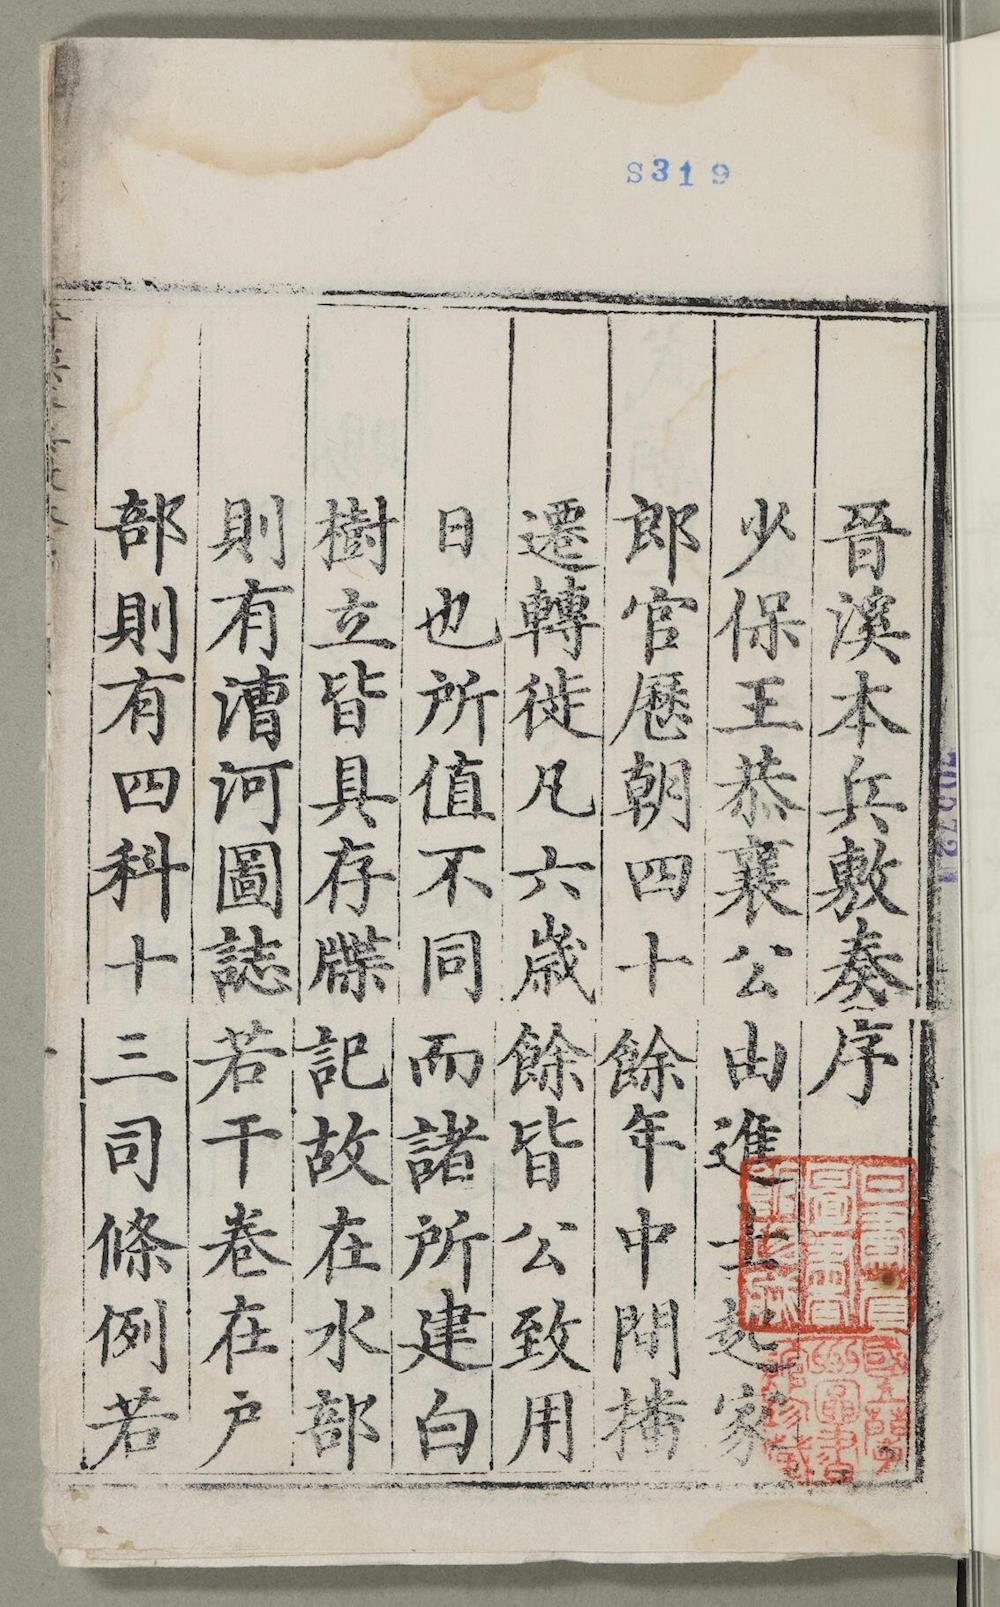 S319
晉溪本兵敷奏序
少保王恭襄公由進士起家
郎官歷朝四十餘年中間播
遷轉徙凡六歲餘皆公致用
日也所值不同而諸所建白
樹立皆具存牒記故在水部
則有漕河圖誌若干卷在户
部則有四科十三司條例若